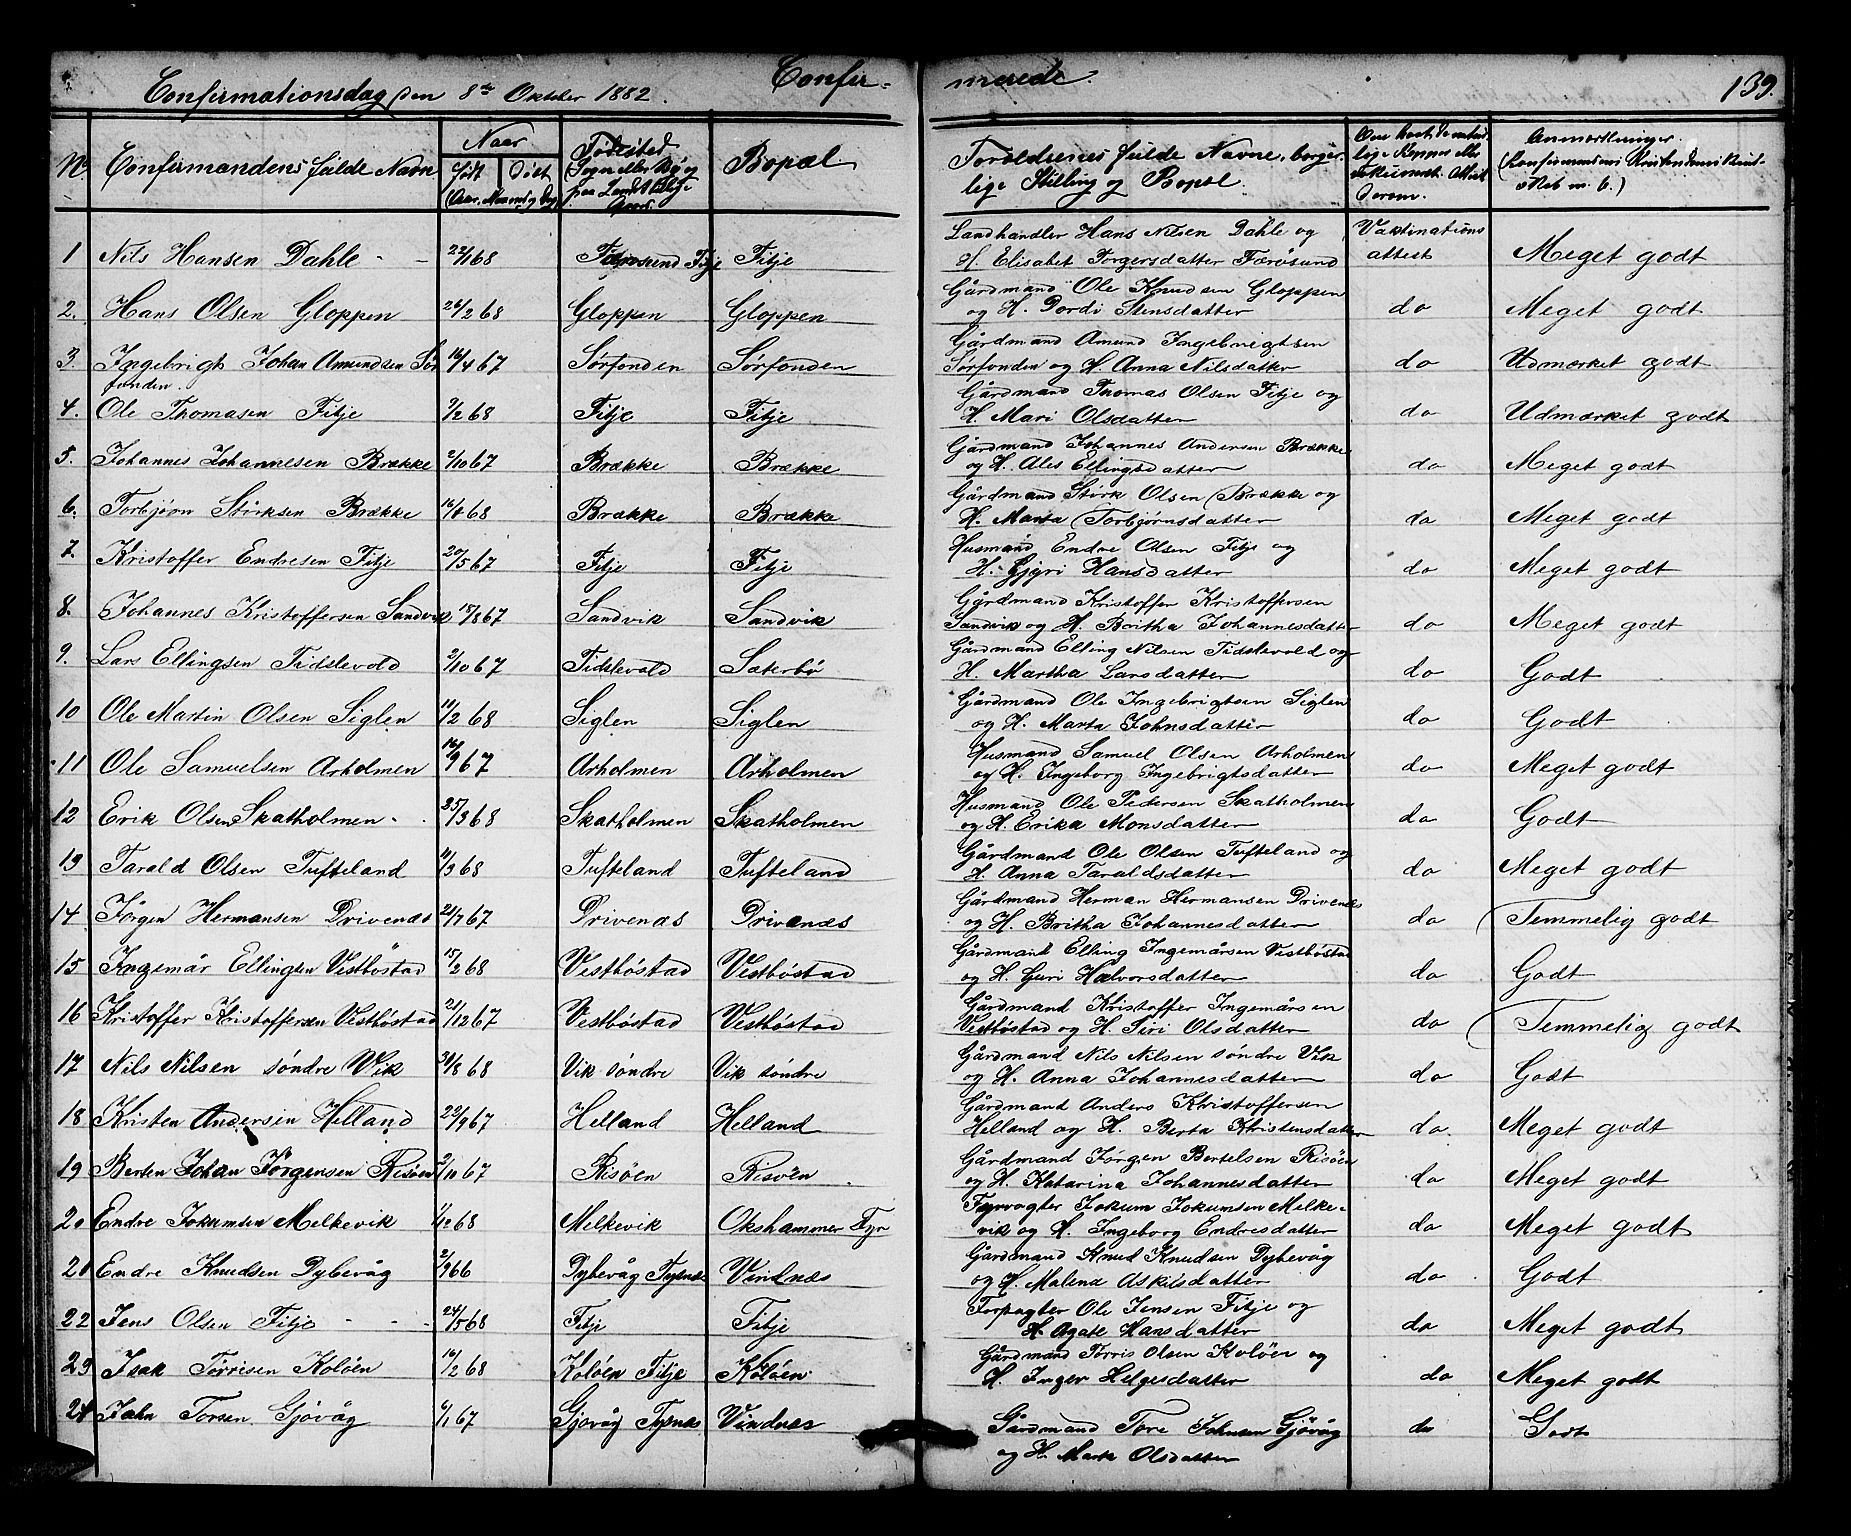 Confirmerede
139.
Confirmationsdag den 8de Oktober 1882.
No Confirmandens fulde Navn Naar Født Døbt (Aar, Maaned og Dag) Fødested Bopæl Forældrenes fulde Navne, borgerlige Stilling og Bopæl. Anmærkninger.
1 Nils Hansen Dahle 22/1 68 Færøsund Fitje Fitje Landhandler Hans Nilsen Dahle og H. Elisabet Torgersdatter Færøsund Vaktinations attest Meget godt
2. Hans Olsen Gloppen 26/2 68 Gloppen Gloppen Gårdmand Ole Knudsen Gloppen og H. Dordi Stensdatter do Meget godt
3. Ingebrigt Johan Amundsen Sørfonden. 16/4 67 Sørfonden Sørfonden Gårdmand Amund Ingebrigtsen Sørfonden og H. Anna Nilsdatter do Udmærket godt
4. Ole Thomasen Fitje 7/2 68 Fitje Fitje Gårdmand Thomas Olsen Fitje og H. Mari Olsdatter do Udmærket godt
5. Johannes Johannesen Brække 2/10 67 Brække Brække Gårdmand Johannes Andersen Brække og H. Ales Ellingsdatter do Meget godt
6. Torbjørn Stirksen Brække 68 Brække Brække Gårdmand Stirk Olsen Brække og H. Marta Torbjørnsdatter do Meget godt
7. Kristoffer Endresen Fitje 20/5 67 Fitje Fitje Husmand Endre Olsen Fitje og H. Gjyri Hansdatter do Meget godt
8. Johannes Kristoffersen Sandvik 15/8 67 Sandvik Sandvik Gårdmand Kristoffer Kristoffersen Sandvik og H. Britha Johannesdatter do Meget godt
9. Lars Ellingsen Tidslevold 2/10 67 Tidslevold Sæterbø Gårdmand Elling Nilsen Tidslevold og H. Martha Larsdatter do Godt
10 Ole Martin Olsen Siglen 11/2 68 Siglen Siglen Gårdmand Ole Ingebrigtsen Siglen og H. Marta Johnsdatter do Godt
11 Ole Samuelsen Arholmen 16/9 67 Arholmen Arholmen Husmand Samuel Olsen Arholmen og H. Ingeborg Ingebrigtsdatter do Meget godt
12 Erik Olsen Skatholmen 25/3 68 Skatholmen Skatholmen Husmand Ole Pedersen Skatholmen og H. Erika Monsdatter do Godt
13 Tarald Olsen Tufteland 11/3 68 Tufteland Tufteland Gårdmand Ole Olsen Tufteland og H. Anna Taraldsdatter do Meget godt
14. Jørgen Hermansen Drivenæs 21/7 67 Drivenæs Drivenæs Gårdmand Herman Hermansen Drivenæs og H. Britha Johannesdatter do Temmelig godt
15 Ingemår Ellingsen Vestbøstad 15/2 68 Vestbøstad Vestbøstad Gårdmand Elling Ingemårsen Vestbøstad og H. Guri Halvorsdatter do Godt
16 Kristoffer Kristoffersen Vestbøstad 21/12 67 Vestbøstad Vestbøstad Gårdmand Kristoffer Ingemårsen Vestbøstad og H. Siri Olsdatter do Temmelig godt
17 Nils Nilsen søndre Vik 68 Vik søndre Vik søndre Gårdmand Nils Nilsen søndre Vik og H. Anna Johannesdatter do Godt
18 Kristen Andersen Helland 22/9 67 Helland Helland Gårdmand Anders Kristoffersen Helland og H. Berta Kristensdatter do Meget godt
19 Berten Johan Jørgensen Risøen 67 Risøen Risøen Gårdmand Jørgen Bertelsen Risøen og H. Katarina Johannesdatter do Meget godt
20 Endre Jokumsen Melkevik 68 Melkevik Okshammer Fyr Fyrvogter Jokum Jokumsen Melkevik og H. Ingeborg Endresdatter do Meget godt
21 Endre Knudsen Dybevåg 2/9 66 Dybevåg Tysnæs Vindnæs Gårdmand Knud Knudsen Dybevåg og H. Malena Askilsdatter do Godt
22 Jens Olsen Fitje 24/5 68 Fitje Fitje Forpagter Ole Jensen Fitje og H. Agate Hansdatter do Meget godt
23 Isak Tørrisen Koløen 16/2 68 Koløen Fitje Koløen Gårdmand Tørris Olsen Koløen og H. Inger Helgesdatter do Meget godt
24 John Torsen Gjøvåg 6/1 67 Gjøvåg Tysnæs Vindnæs Gårdmand Tore Johnsen Gjøvåg og H. Marta Olsdatter do Godt